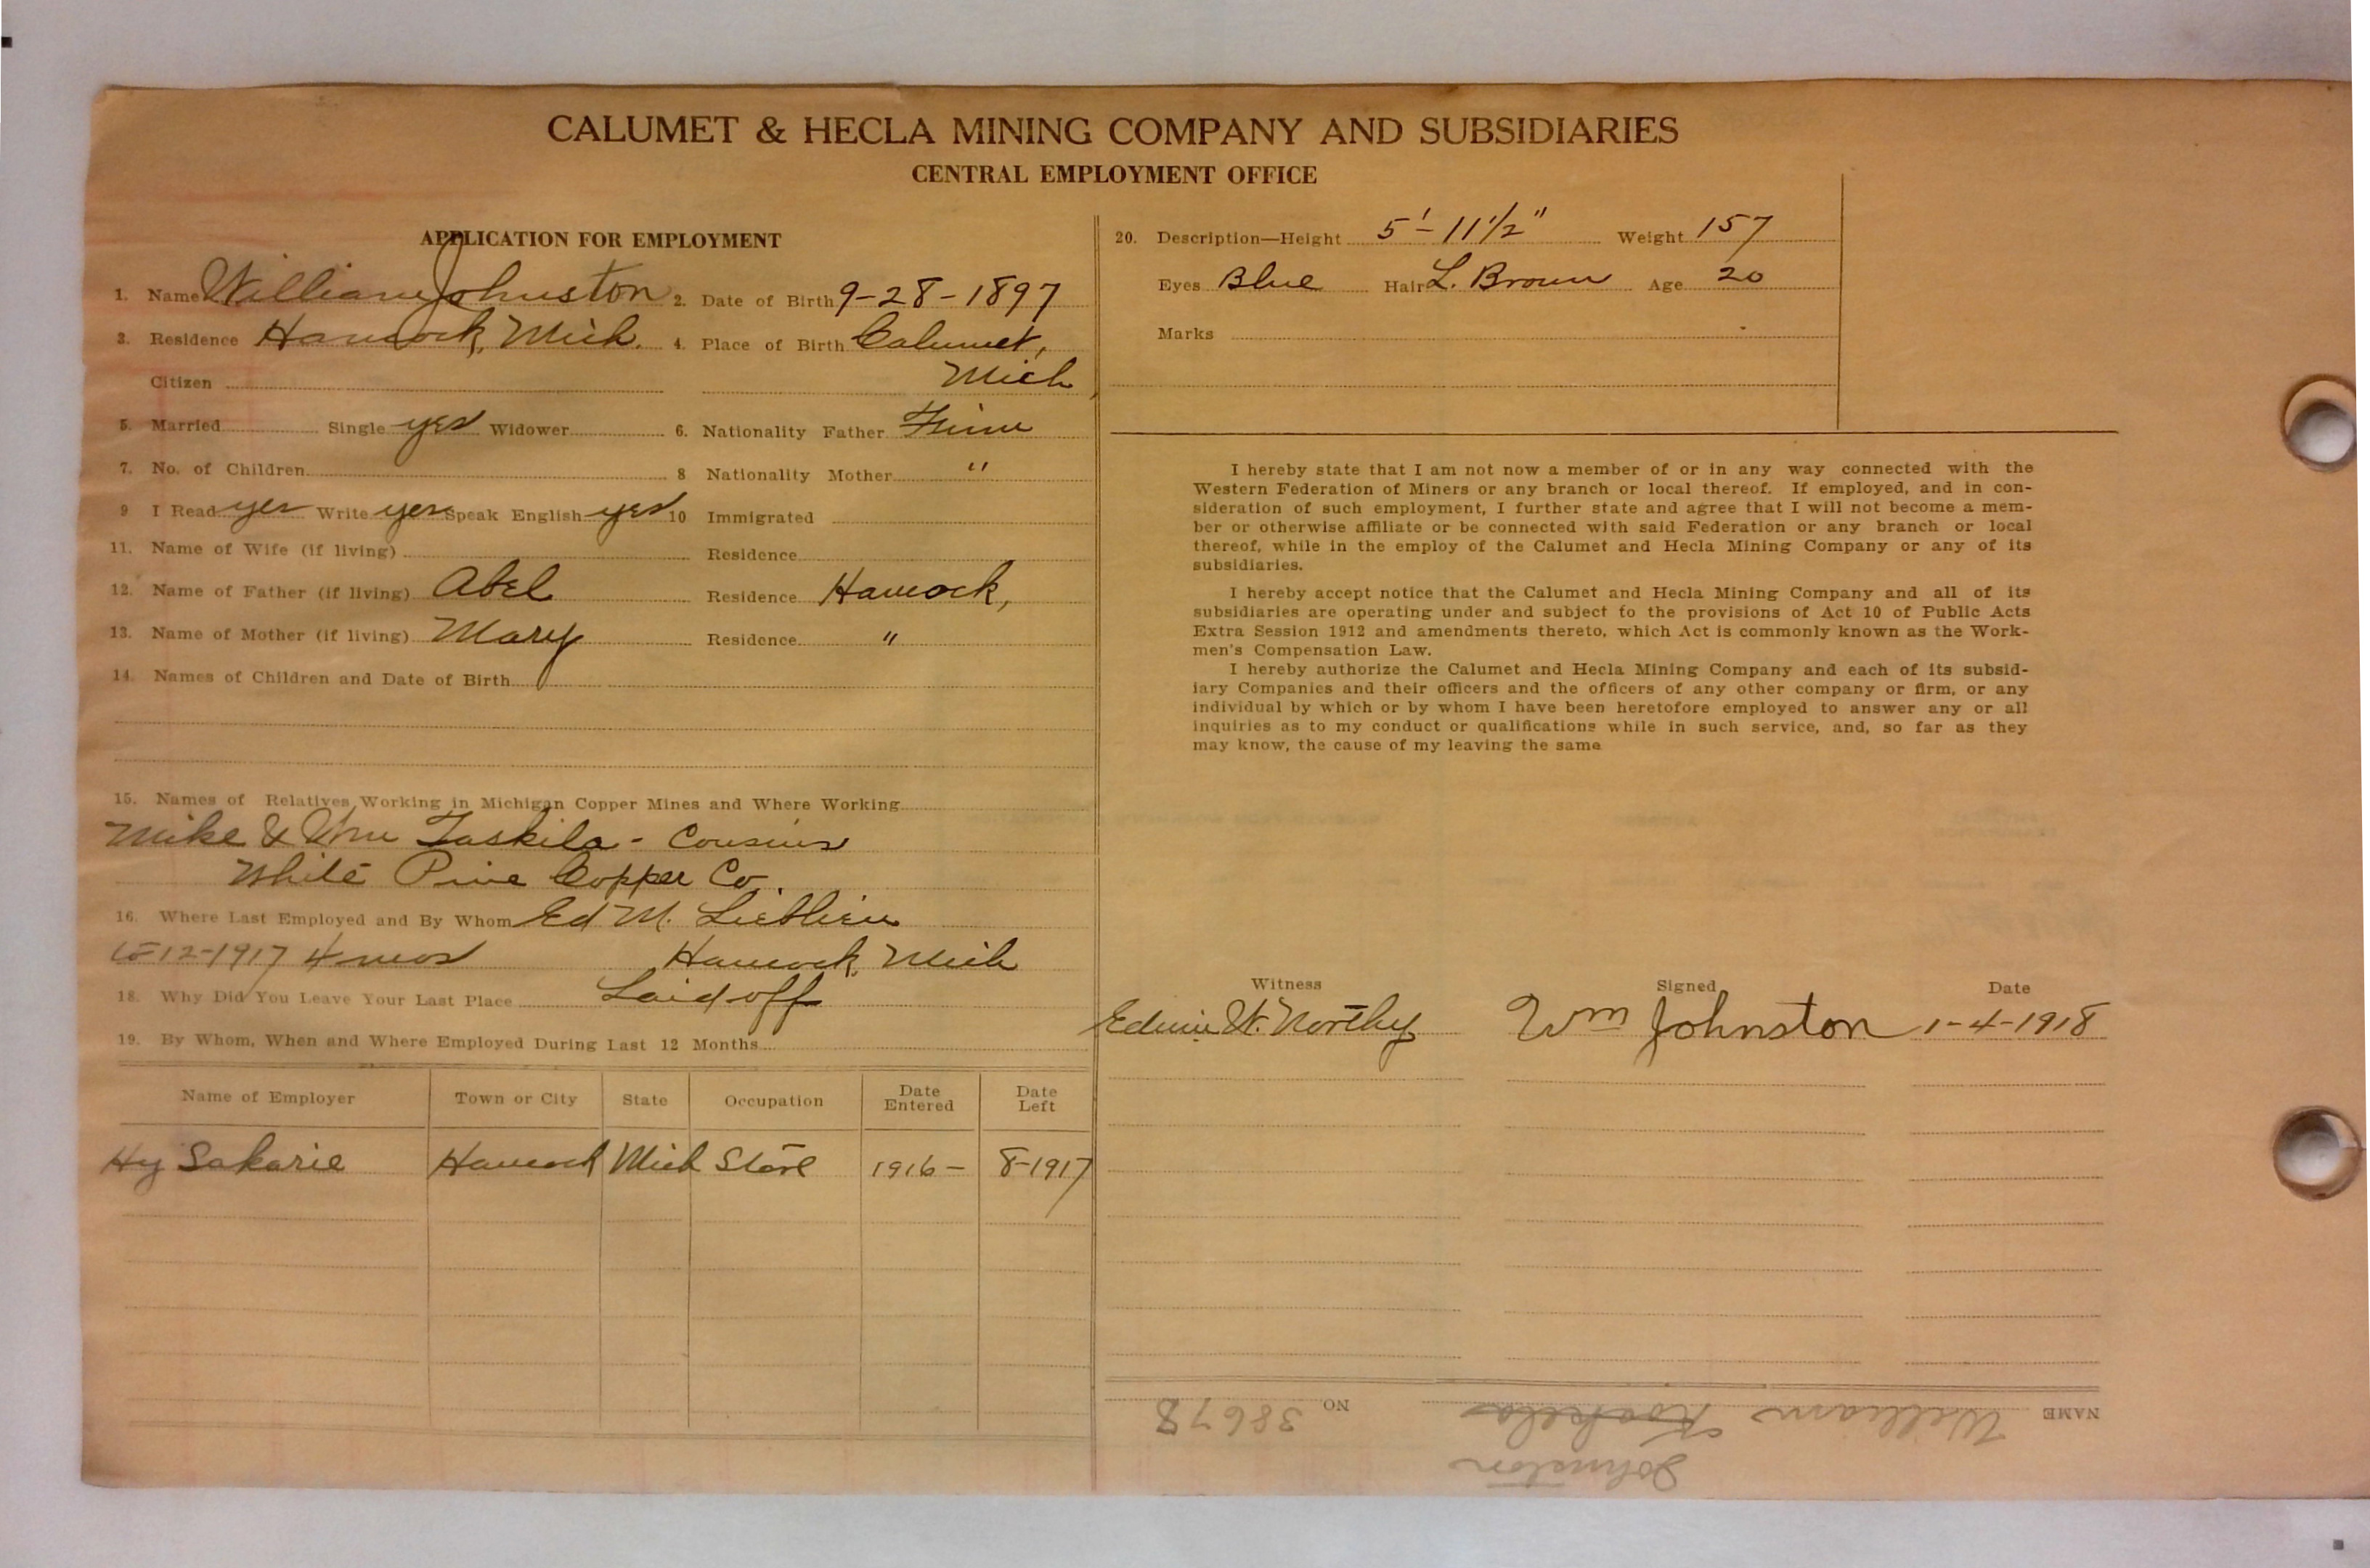 CALUMET & HECLA MINING COMPANY AND SUBSIDIARIES
CENTRAL EMPLOYMENT OFFICE
APPLICATION FOR EMPLOYMENT
1. Name William Johnston 2. Date of Birth 9-28-1897
3. Residence Hancock, Mich. 4. Place of Birth Calumet,
Citizen Mich
5. Married Single yes Widower 6. Nationality Father Finn
7. No. of Children 8 Nationality Mother "
9 I Read yes Write yes Speak English yes 10 Immigrated
11. Name of Wife (if living) Residence
12. Name of Father (if living) Abel Residence Hancock,
13. Name of Mother (if living) Mary Residence "
14. Names of Children and Date of Birth
15. Names of Relatives Working in Michigan Copper Mines and Where Working
Mike & Wm Taskila - Cousins
White Pine Copper Co.
16. Where Last Employed and By Whom Ed M. Lieblein
12-1917 4 mos Hancock, Mich
18. Why Did You Leave Your Last Place Laid off
19. By Whom, When and Where Employed During Last 12 Months
Name of Employer Town or City State Occupation Date Entered Date Left
Hy Sakarie Hancock Mich Store 1916- 8-1917
20. Description—Height 5'-11 1/2" Weight 157
Eyes Blue Hair L. Brown Age 20
Marks
I hereby state that I am not now a member of or in any way connected with the
Western Federation of Miners or any branch or local thereof. If employed, and in con-
sideration of such employment, I further state and agree that I will not become a mem-
ber or otherwise affiliate or be connected with said Federation or any branch or local
thereof, while in the employ of the Calumet and Hecla Mining Company or any of its
subsidiaries.
I hereby accept notice that the Calumet and Hecla Mining Company and all of its
subsidiaries are operating under and subject to the provisions of Act 10 of Public Acts
Extra Session 1912 and amendments thereto, which Act is commonly known as the Work-
men's Compensation Law.
I hereby authorize the Calumet and Hecla Mining Company and each of its subsid-
iary Companies and their officers and the officers of any other company or firm, or any
individual by which or by whom I have been heretofore employed to answer any or all
inquiries as to my conduct or qualifications while in such service, and, so far as they
may know, the cause of my leaving the same
Witness Signed Date
Edwin W. Northey Wm Johnston 1-4-1918
Johnston
NAME William NO 38678